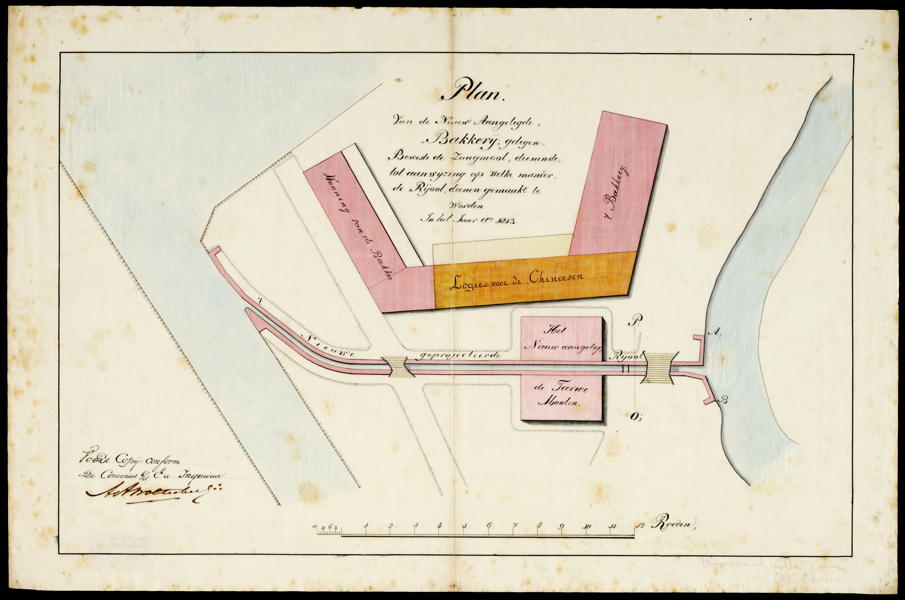 Plan.
Van de Nieuw Aangelegde
Bakkerij; gelegen
Beweste de Zaagmool, dienende,
tot aanwyzing op welke manier
de Rijool, dienen gemaakt te
Worden
In het Jaar A°. 1813
Wooning van de Bakker
't Bakkery
Logies voor de Chineesen
't Nieuwe geprojecteerde Rijool
Het
Nieuw aangeleg
de Teerwe
Moolen.
P
O;
A
B
Copij conform
De Ingenieur
1 2 3 4 5 6 7 8 9 10 11 12 Roeden,